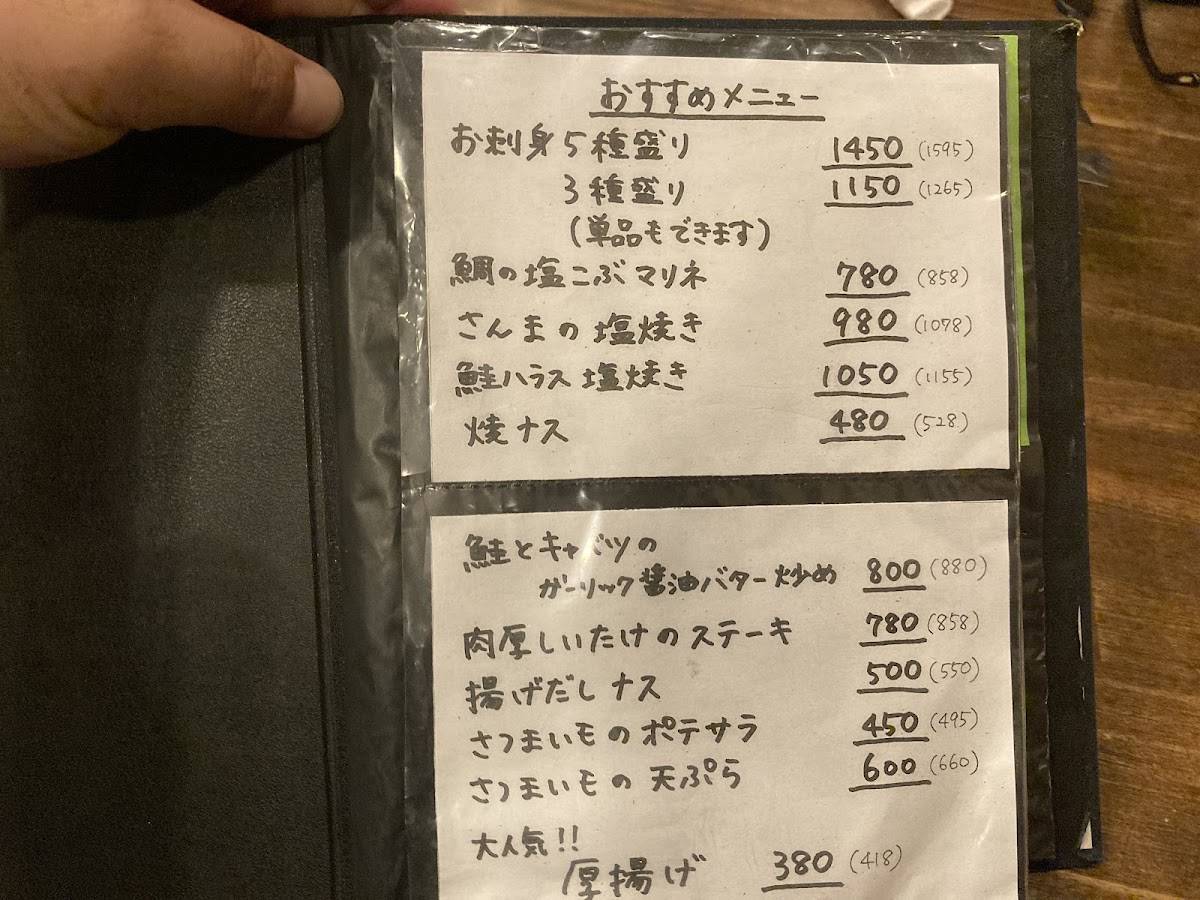 おすすめメニュー
お刺身5種盛り 1450 (1595)
3種盛り 1150 (1265)
(単品もできます)
鯛の塩こぶマリネ 780 (858)
さんまの塩焼き 980 (1078)
鮭ハラス塩焼き 1050 (1155)
焼ナス 480 (528)
鮭とキャベツの
ガーリック醤油バター炒め 800 (880)
肉厚しいたけのステーキ 780 (858)
揚げだしナス 500 (550)
さつまいものポテサラ 450 (495)
さつまいもの天ぷら 600 (660)
大人気!!
厚揚げ 380 (418)